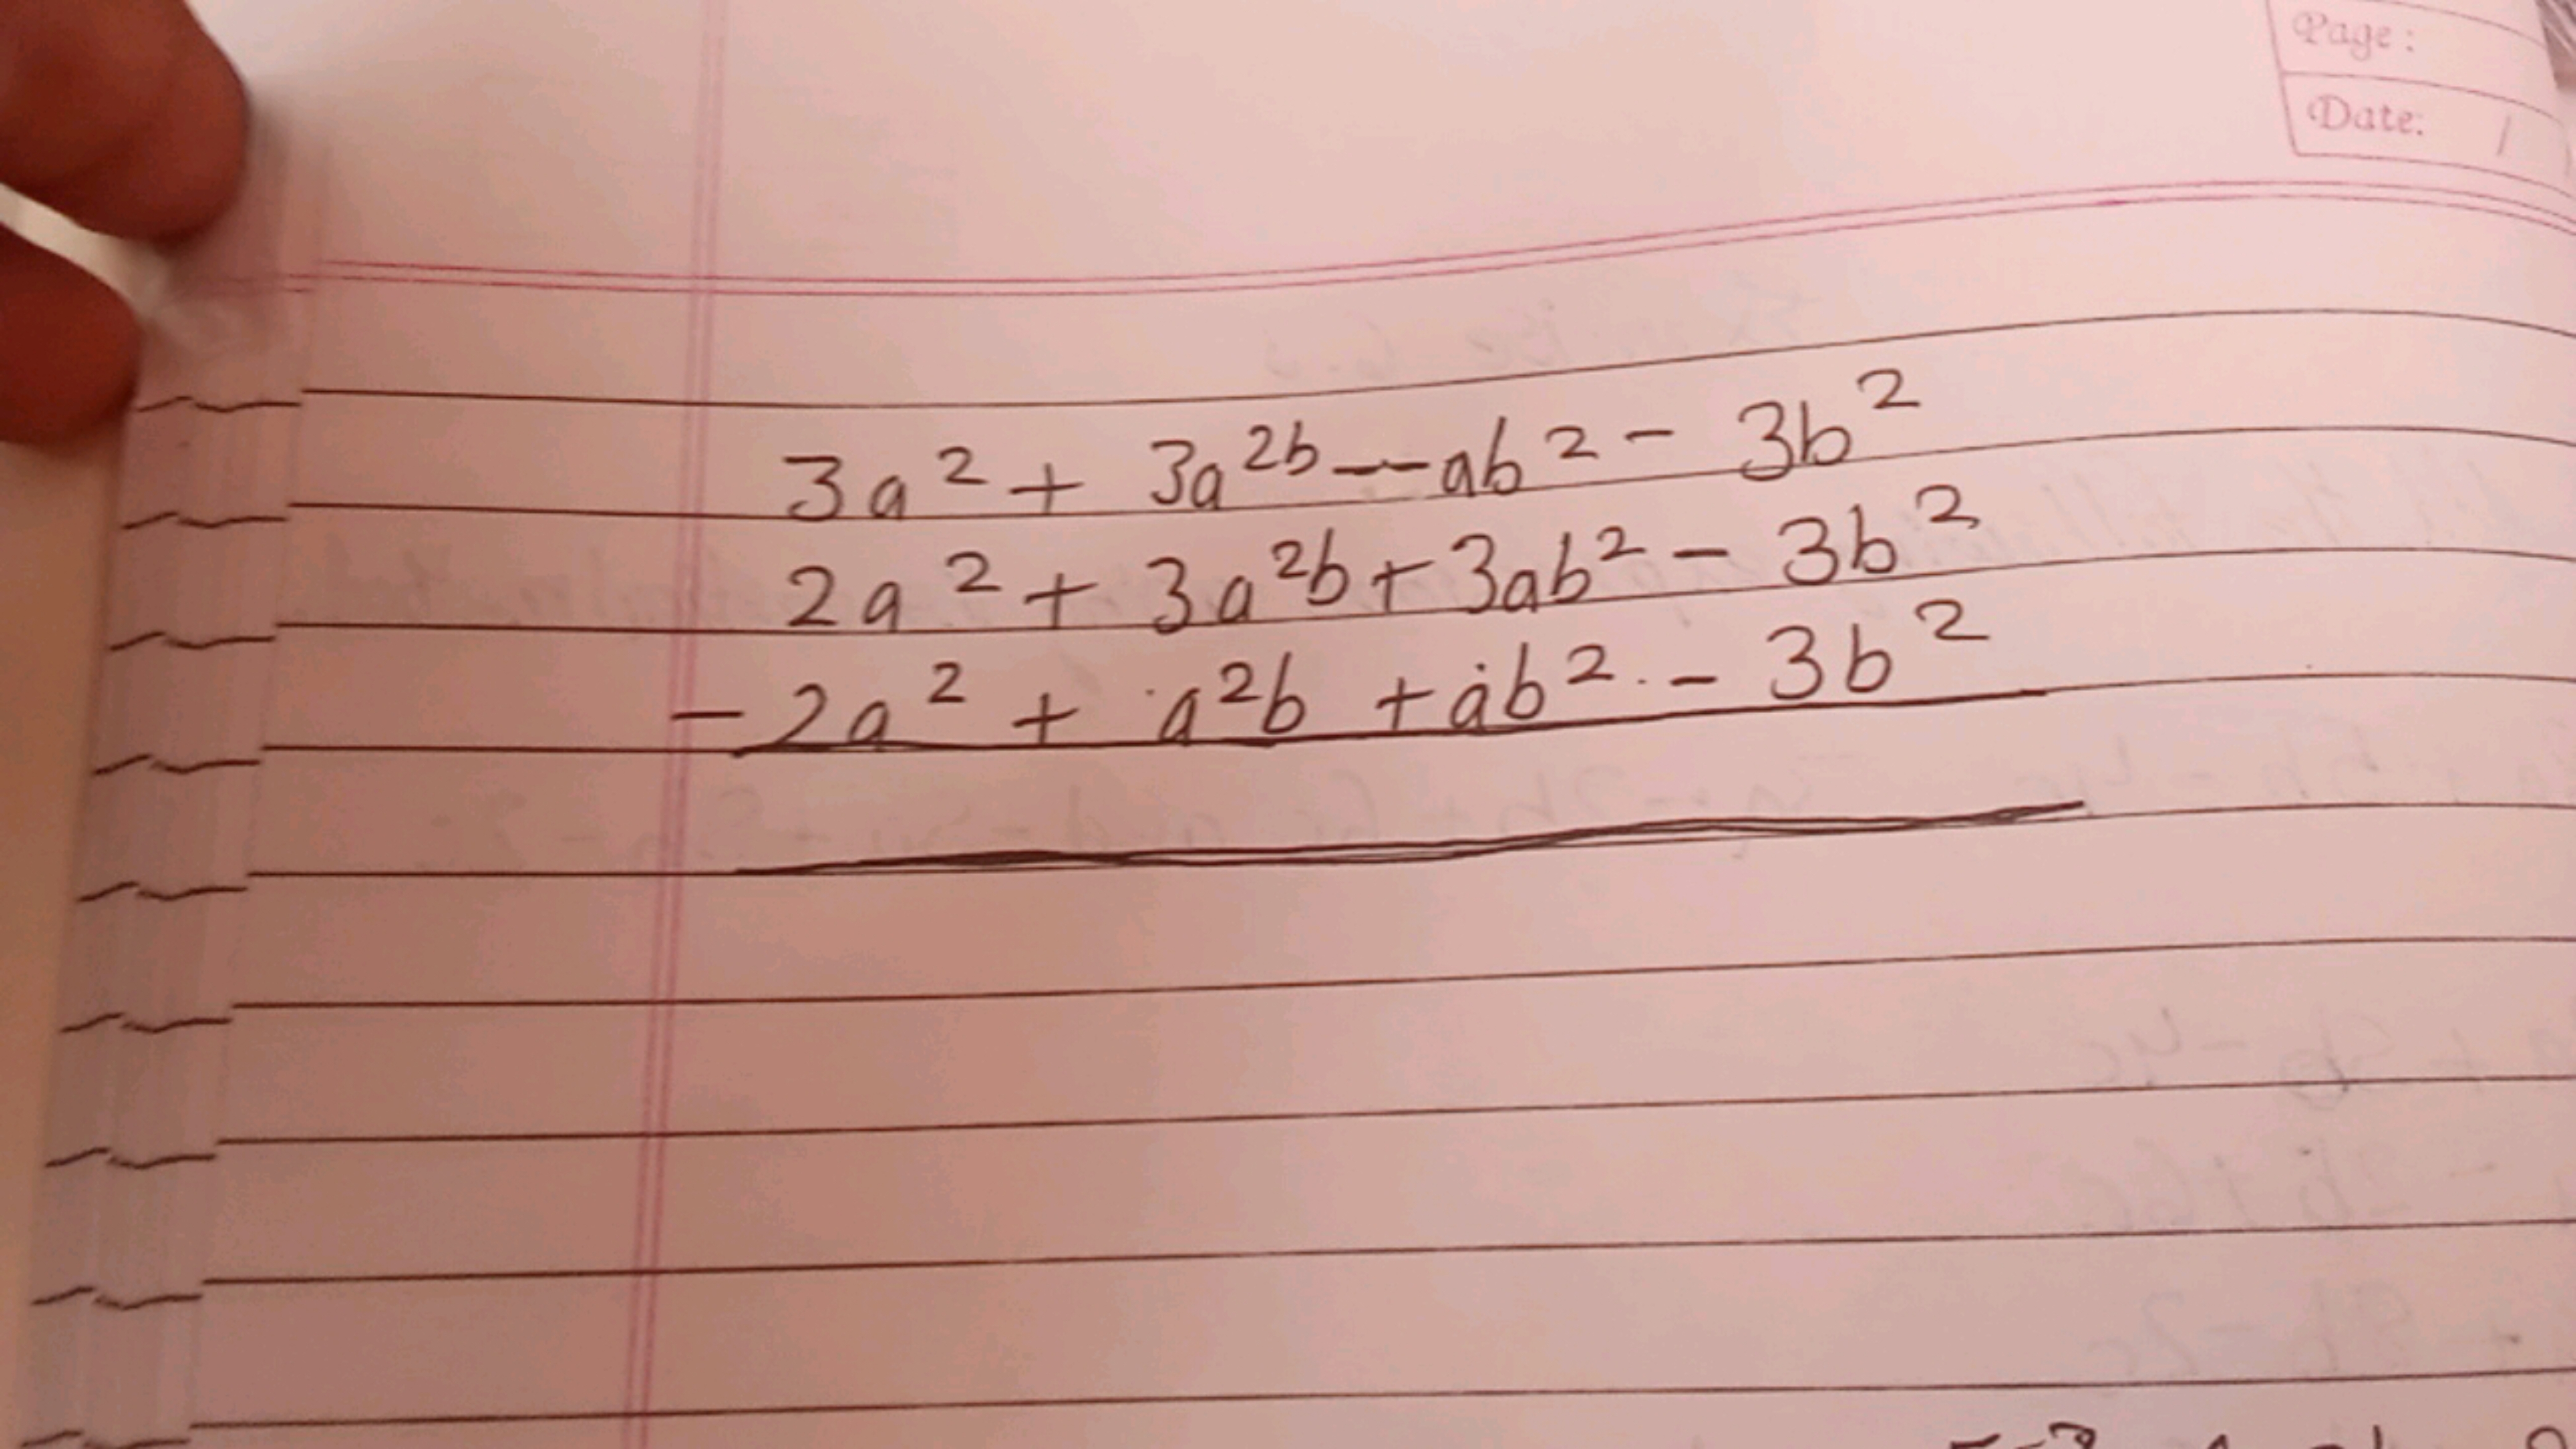 Page :
Date: /
3a² + 3a²ᵇ — ab² - 3b²
2a² + 3a²b + 3ab² - 3b²
- 2a² + a²b + ab² - 3b²